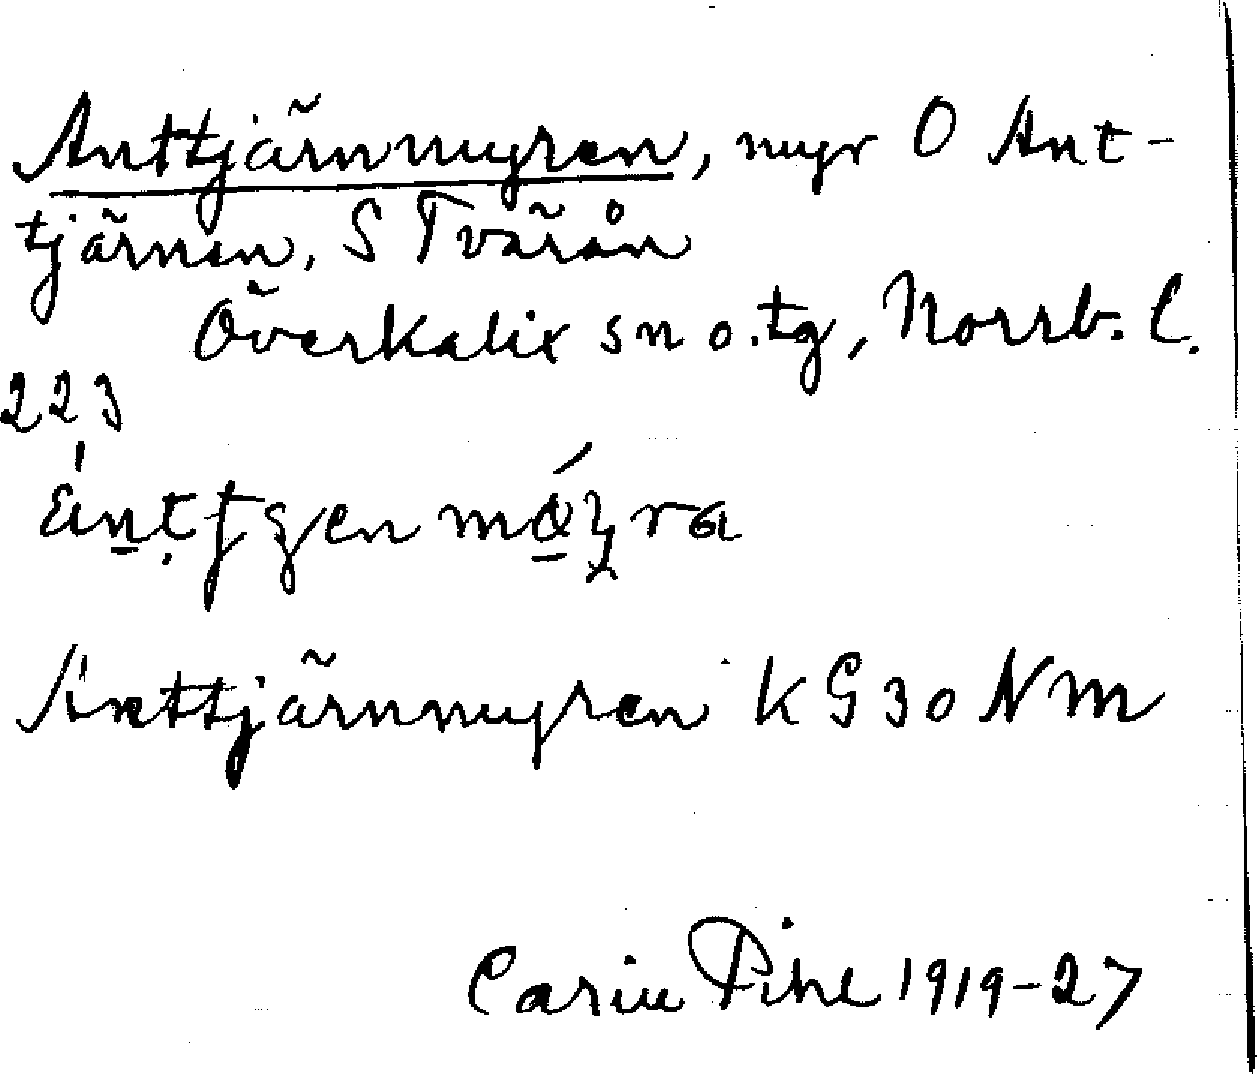 Anttjärnmyren, myr O Ant-
tjärnen, S Tvärån
Överkalix sn o. tg, Norrb. l.
223
Anttjärnmyren KG 30 NM
Carin Pihl 1919-27